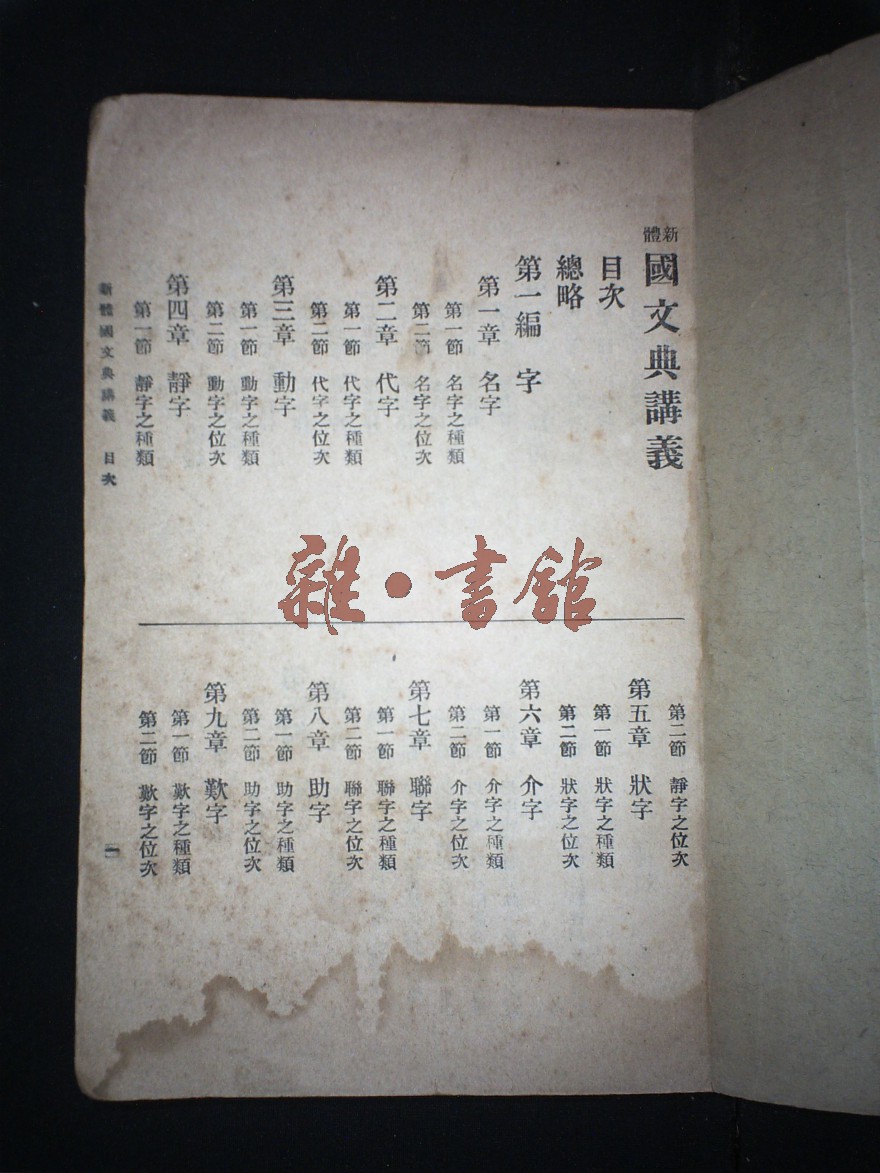 新體國文典講義
目次
總略
第一編 字
第一章 名字
第一節 名字之種類
第二節 名字之位次
第二章 代字
第一節 代字之種類
第二節 代字之位次
第三章 動字
第一節 動字之種類
第二節 動字之位次
第四章 靜字
第一節 靜字之種類
第二節 靜字之位次
第五章 狀字
第一節 狀字之種類
第二節 狀字之位次
第六章 介字
第一節 介字之種類
第二節 介字之位次
第七章 聯字
第一節 聯字之種類
第二節 聯字之位次
第八章 助字
第一節 助字之種類
第二節 助字之位次
第九章 歎字
第一節 歎字之種類
第二節 歎字之位次
新體國文典講義 目次
一
雜·書館